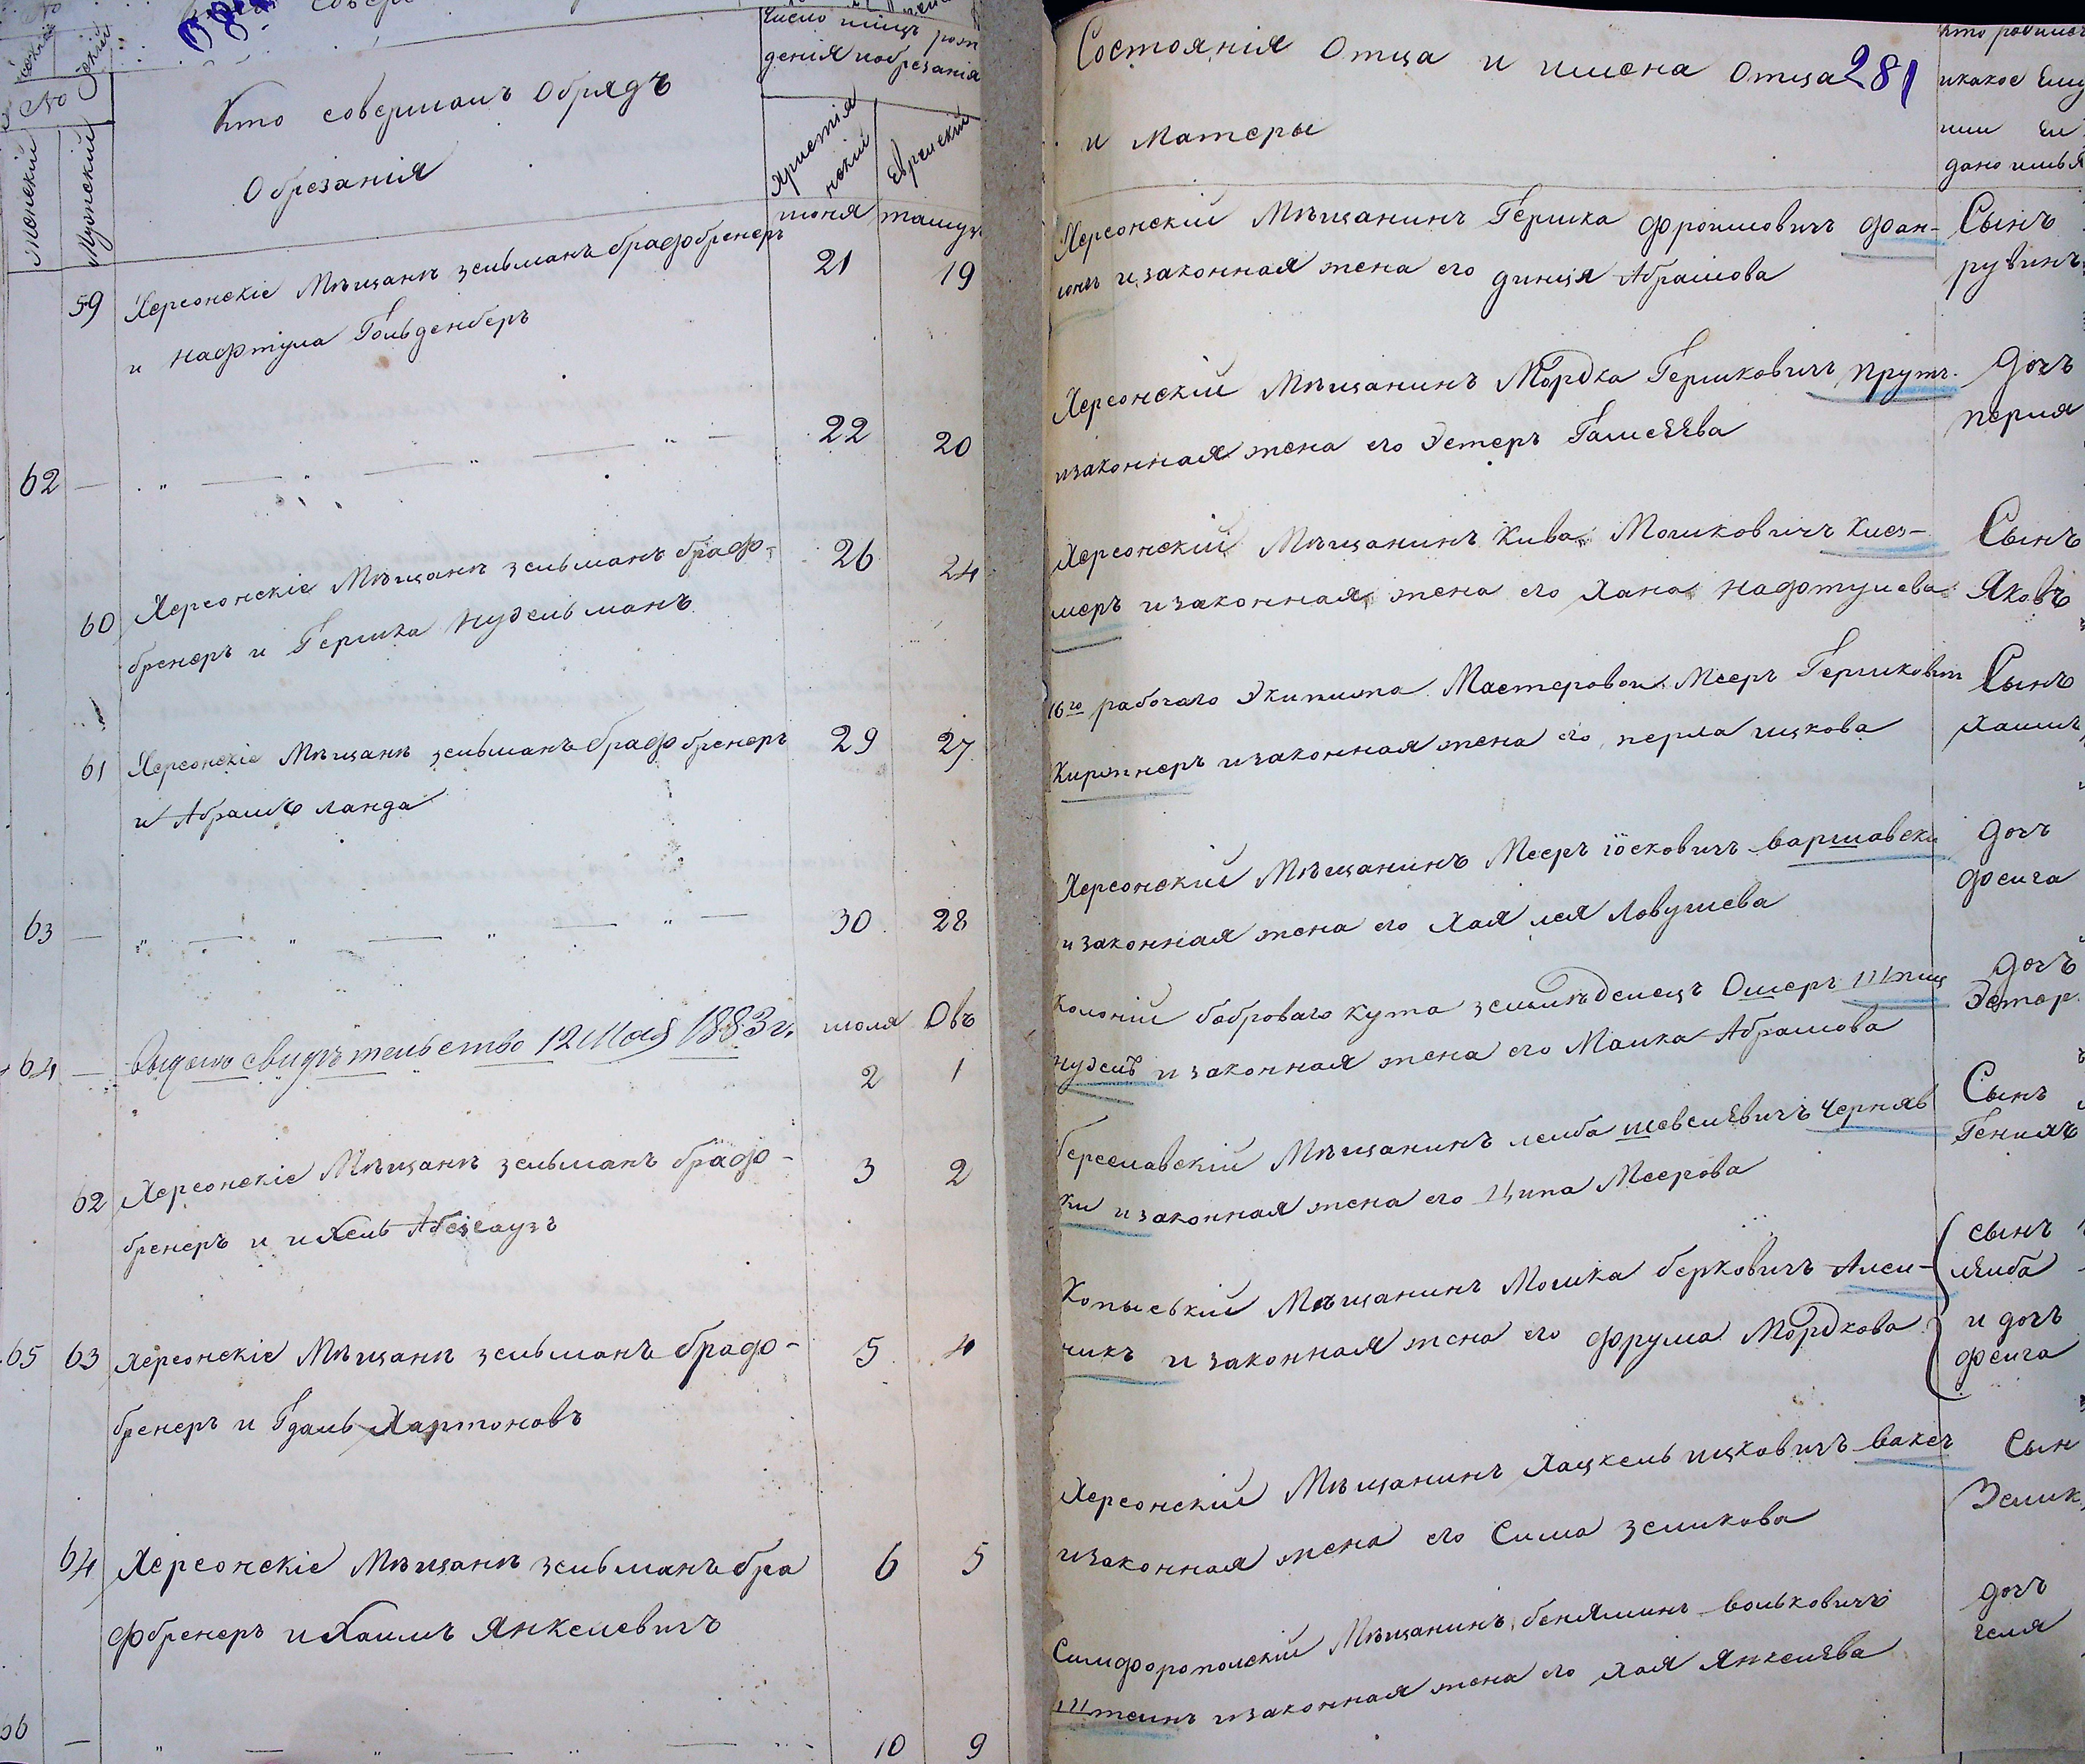 №
Кто совершалъ Обрядъ
Обрезанія
Число месц рож
денія иобрезанія
Христія
нскій
Еврейскій
Женскій
Мужескій
июня
тамуз
59 Херсонскіе Мѣщанѣ зельманъ брафбренеръ 21 19
и нафтула Гольденберъ
62 — „ — „ — „ — 22 20
60 Херсонскіе Мѣщанѣ зельманъ браф- 26 24
бренеръ и Гершка нудельманъ
61 Херсонскіе Мѣщанѣ зельманъ брафбренеръ 29 27
и Абрамъ ланда
63 — „ — „ — „ — „ — 30 28
июля Овъ
64 — Выдано свидѣтельство 12 Мая 1883 г. 2 1
62 Херсонскіе Мѣщанѣ зельманъ браф- 3 2
бренеръ и ихель
65 63 Херсонскіе Мѣщанѣ зельманъ браф- 5 4
бренеръ и Гдаль Хартоновъ
64 Херсонскіе Мѣщанѣ зельманъ бра 6 5
фбренеръ и Хаимъ Янкелевичъ
66 — „ — „ — „ — 10 9
Состоянія Отца и имена Отца 281
и Матеры
Кто родился
икакое Ему
или Ей
дано имья
Херсонскій Мѣщанинъ Гершка фроимовичъ фан-
изаконная жена его динця Абрамова
Сынъ
рувинъ
Херсонскій Мѣщанинъ Мордка Гершковичъ прутъ
изаконная жена его Эстеръ
дочъ
перля
Херсонскій Мѣщанинъ Кива Мошковичъ Клез-
меръ изаконная жена его Хана нафтулева
Сынъ
Яковъ
16го рабочаго Экипажа Мастеровои Мееръ Гершковичъ
Киржнеръ изаконная жена его перла ицкова
Сынъ
хаимъ
Херсонскій Мѣщанинъ Мееръ іосковичъ варшавски
изаконная жена его Хая лея Ловушева
дочъ
феига
колоній боброваго кута земледелецъ Ошеръ Шпиц
нудель изаконная жена его Малка Абрамова
дочъ
Эстер
береславскій Мѣщанинъ леиба шевелевичъ Черняв
ки изаконная жена его Ципа Меерова
Сынъ
Генихъ
Копыській Мѣщанинъ Мошка берковичъ Алеи-
чикъ изаконная жена его фрума Мордкова
сынъ
леиба
и дочъ
феига
Херсонскій Мѣщанинъ Хацкель ицковичъ Вакеч
изаконная жена его Сима зеликова
Сын
Зелик
Симфоропольскій Мѣщанинъ бенямин вольковичъ
Штеинъ изаконная жена его Хая Янкелева
дочъ
геля